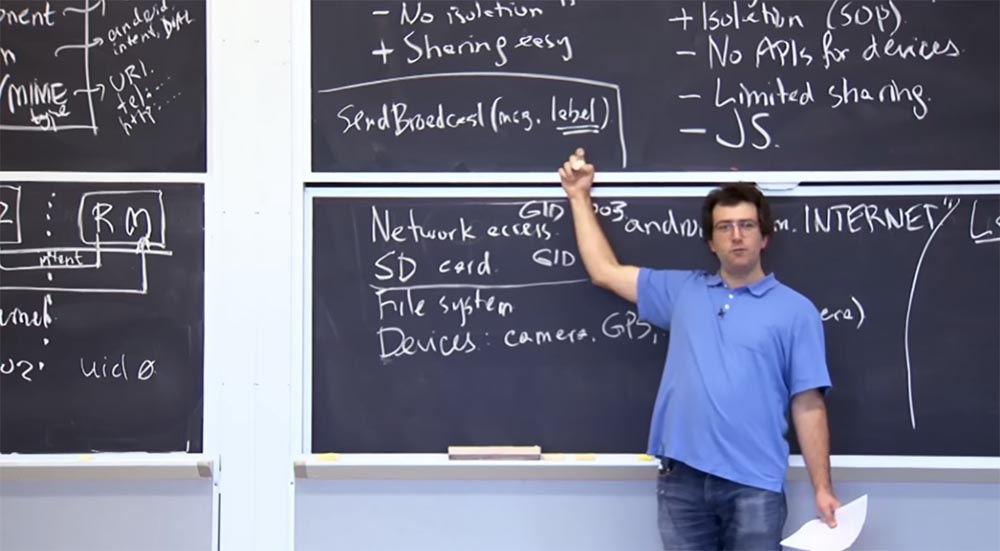 onent
n
/MIME
type
android
intent, DIAL
URI.
tel:...
http:...
R M
intent
uid 0
- No isolation
+ Sharing easy
SendBroadcast(msg, label)
+ Isolation (SOP)
- No APIs for devices.
- Limited sharing.
- JS.
Network access. GID 003 andro m. INTERNET"
SD card. GID
File system
Devices: camera, GPS,
era)